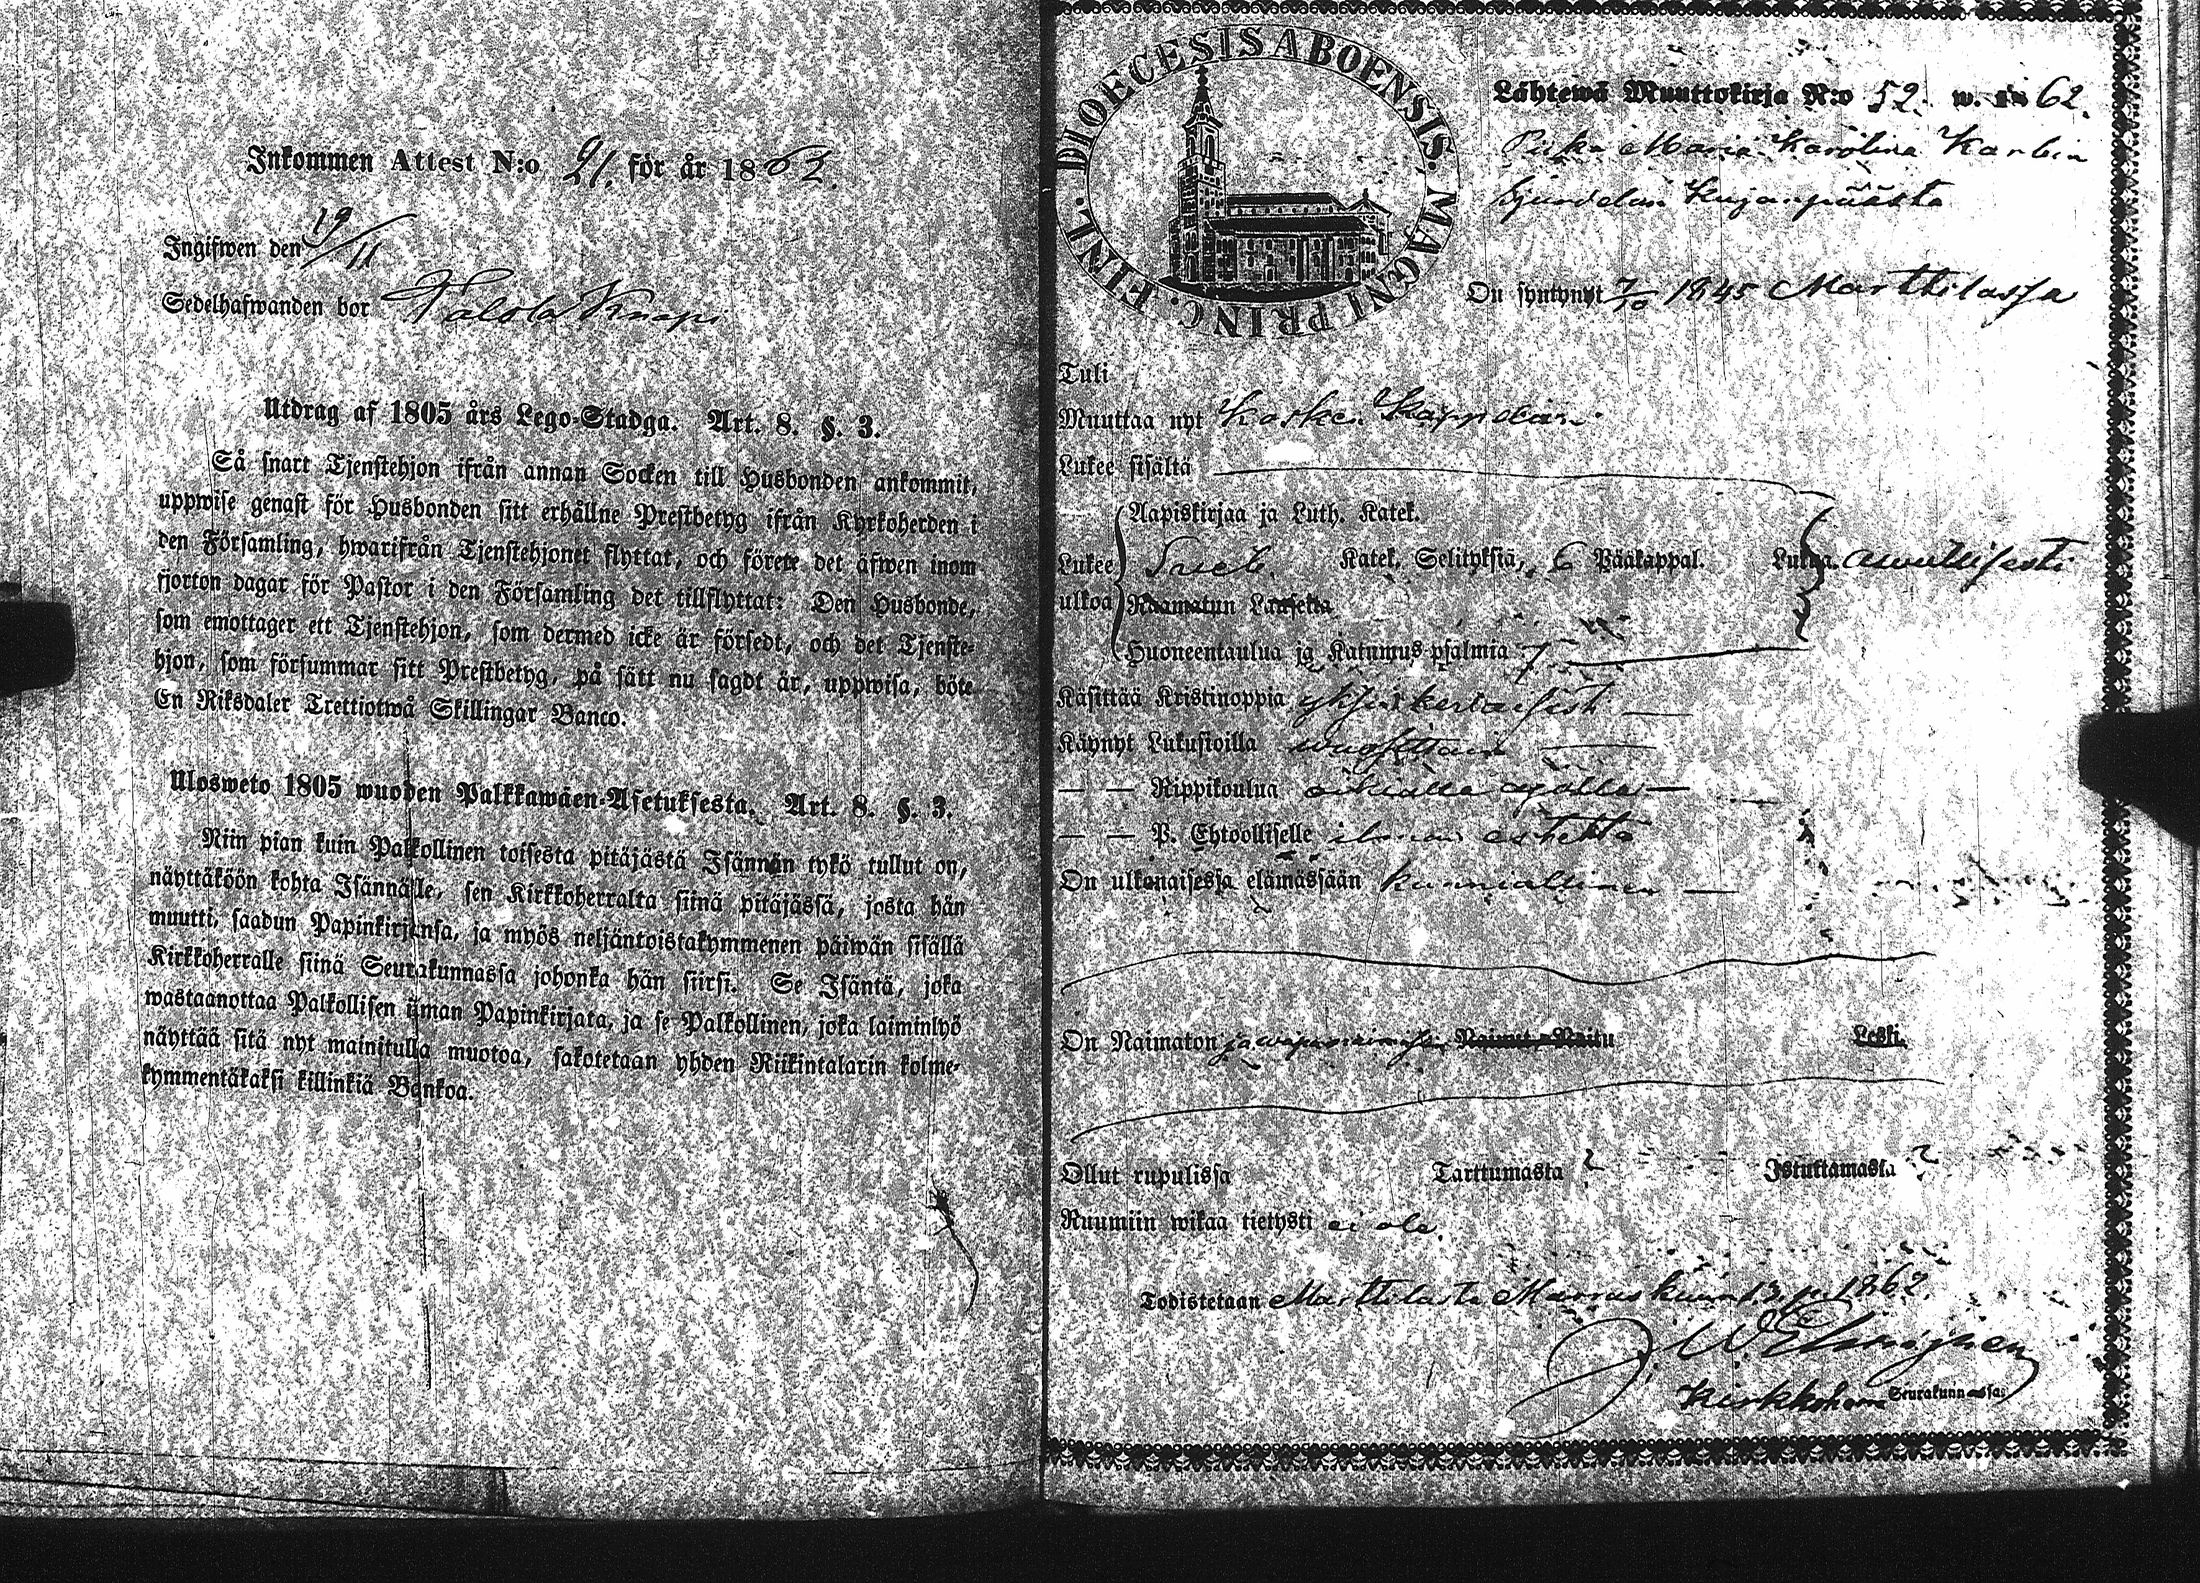 Inkommen Attest N:o 21. för år 1862.
Ingifwen den 19/11
Sedelhafwanden bor Palola Knapi
Utdrag af 1805 års Lego-Stadga. Art. 8. §. 3.
Så snart Tjenstehjon ifrån annan Socken till Husbonden ankommit,
uppwise genast för Husbonden sitt erhållne Prestbetyg ifrån Kyrkoherden i
den Församling, hwarifrån Tjenstehjonet flyttat, och förete det äfwen inom
fjorton dagar för Pastor i den Församling det tillflyttat: Den Husbonde,
som emottager ett Tjenstehjon, som dermed icke är försedt, och det Tjenste-
hjon, som försummar sitt Prestbetyg, på sätt nu sagdt är, uppwisa, böte
En Riksdaler Trettiotwå Skillingar Banco.
Ulosweto 1805 wuoden Palkkawäen-Asetuksesta. Art. 8. §. 3.
Niin pian kuin Palkollinen toisesta pitäjästä Isännän tykö tullut on,
näyttäköön kohta Isännälle, sen Kirkkoherralta siinä pitäjässä, josta hän
muutti, saadun Papinkirjansa, ja myös neljäntoistakymmenen päiwän sisällä
Kirkkoherralle siinä Seurakunnassa johonka hän siirsi. Se Isäntä, joka
wastaanottaa Palkollisen ilman Papinkirjata, ja se Palkollinen, joka laiminlyö
näyttää sitä nyt mainitulla muotoa, sakotetaan yhden Riikintalarin kolme-
kymmentäkaksi killinkiä Bankoa.
DIOECESIS ABOENSIS. MAGNI PRINC. FINL.
Lähtewä Muuttokirja N:o 52. w. 18 62.
Piika Maria Karolina
Kujanpäästä
On syntynyt 7/10 1845 Marttilassa
Tuli
Muuttaa nyt Koske Kappeliin
Lukee sisältä
Aapiskirjaa ja Luth. Katek.
Lukee Katek. Selityksiä, 6 Pääkappal. Lukua. awullisesti
ulkoa Raamatun Lauseita
Huoneentaulua ja Katumus psalmia 7.
Käsittää Kristinoppia yksinkertaisesti
Käynyt Lukusioilla wuosittain
— — Rippikoulua oikialla ajalla
— — P. Ehtoolliselle ilman estettä
On ulkonaisessa elämässään kunniallinen
On Naimaton ja Naimaton Naitu Leski.
Ollut rupulissa Tarttumasta ? Istuttamasta ?
Ruumiin wikaa tietysti ei ole.
Todistetaan Marttilasta Marraskuun 13 p. 1862.
J. W.
Kirkkoherra Seurakunnassa.